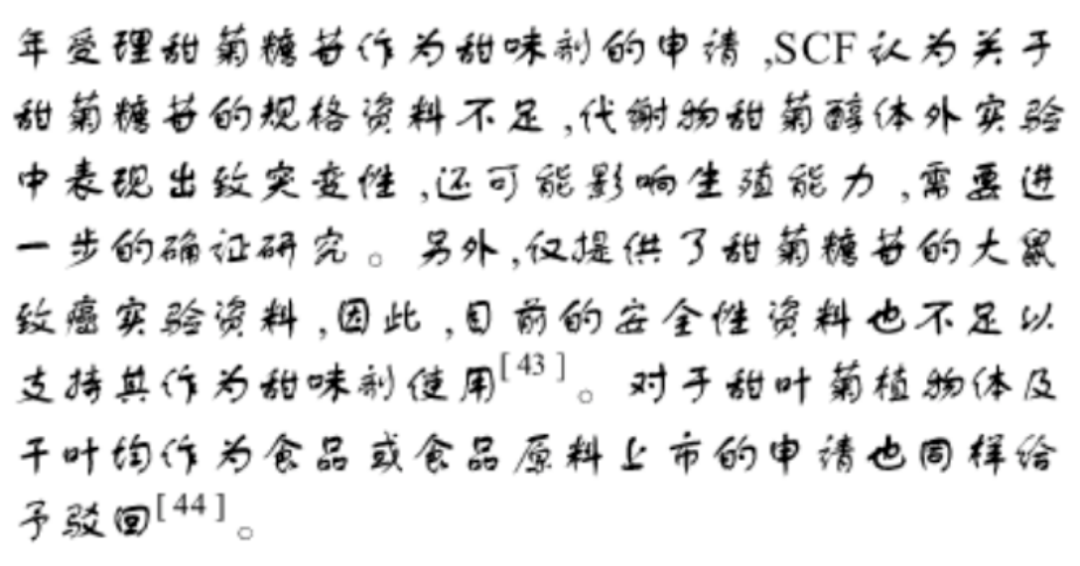 年受理甜菊糖苷作为甜味剂的申请,SCF认为关于
甜菊糖苷的规格资料不足,代谢物甜菊醇体外实验
中表现出致突变性,还可能影响生殖能力,需要进
一步的确证研究。另外,仅提供了甜菊糖苷的大鼠
致癌实验资料,因此,目前的安全性资料也不足以
支持其作为甜味剂使用[43]。对于甜叶菊植物体及
干叶均作为食品或食品原料上市的申请也同样给
予驳回[44]。